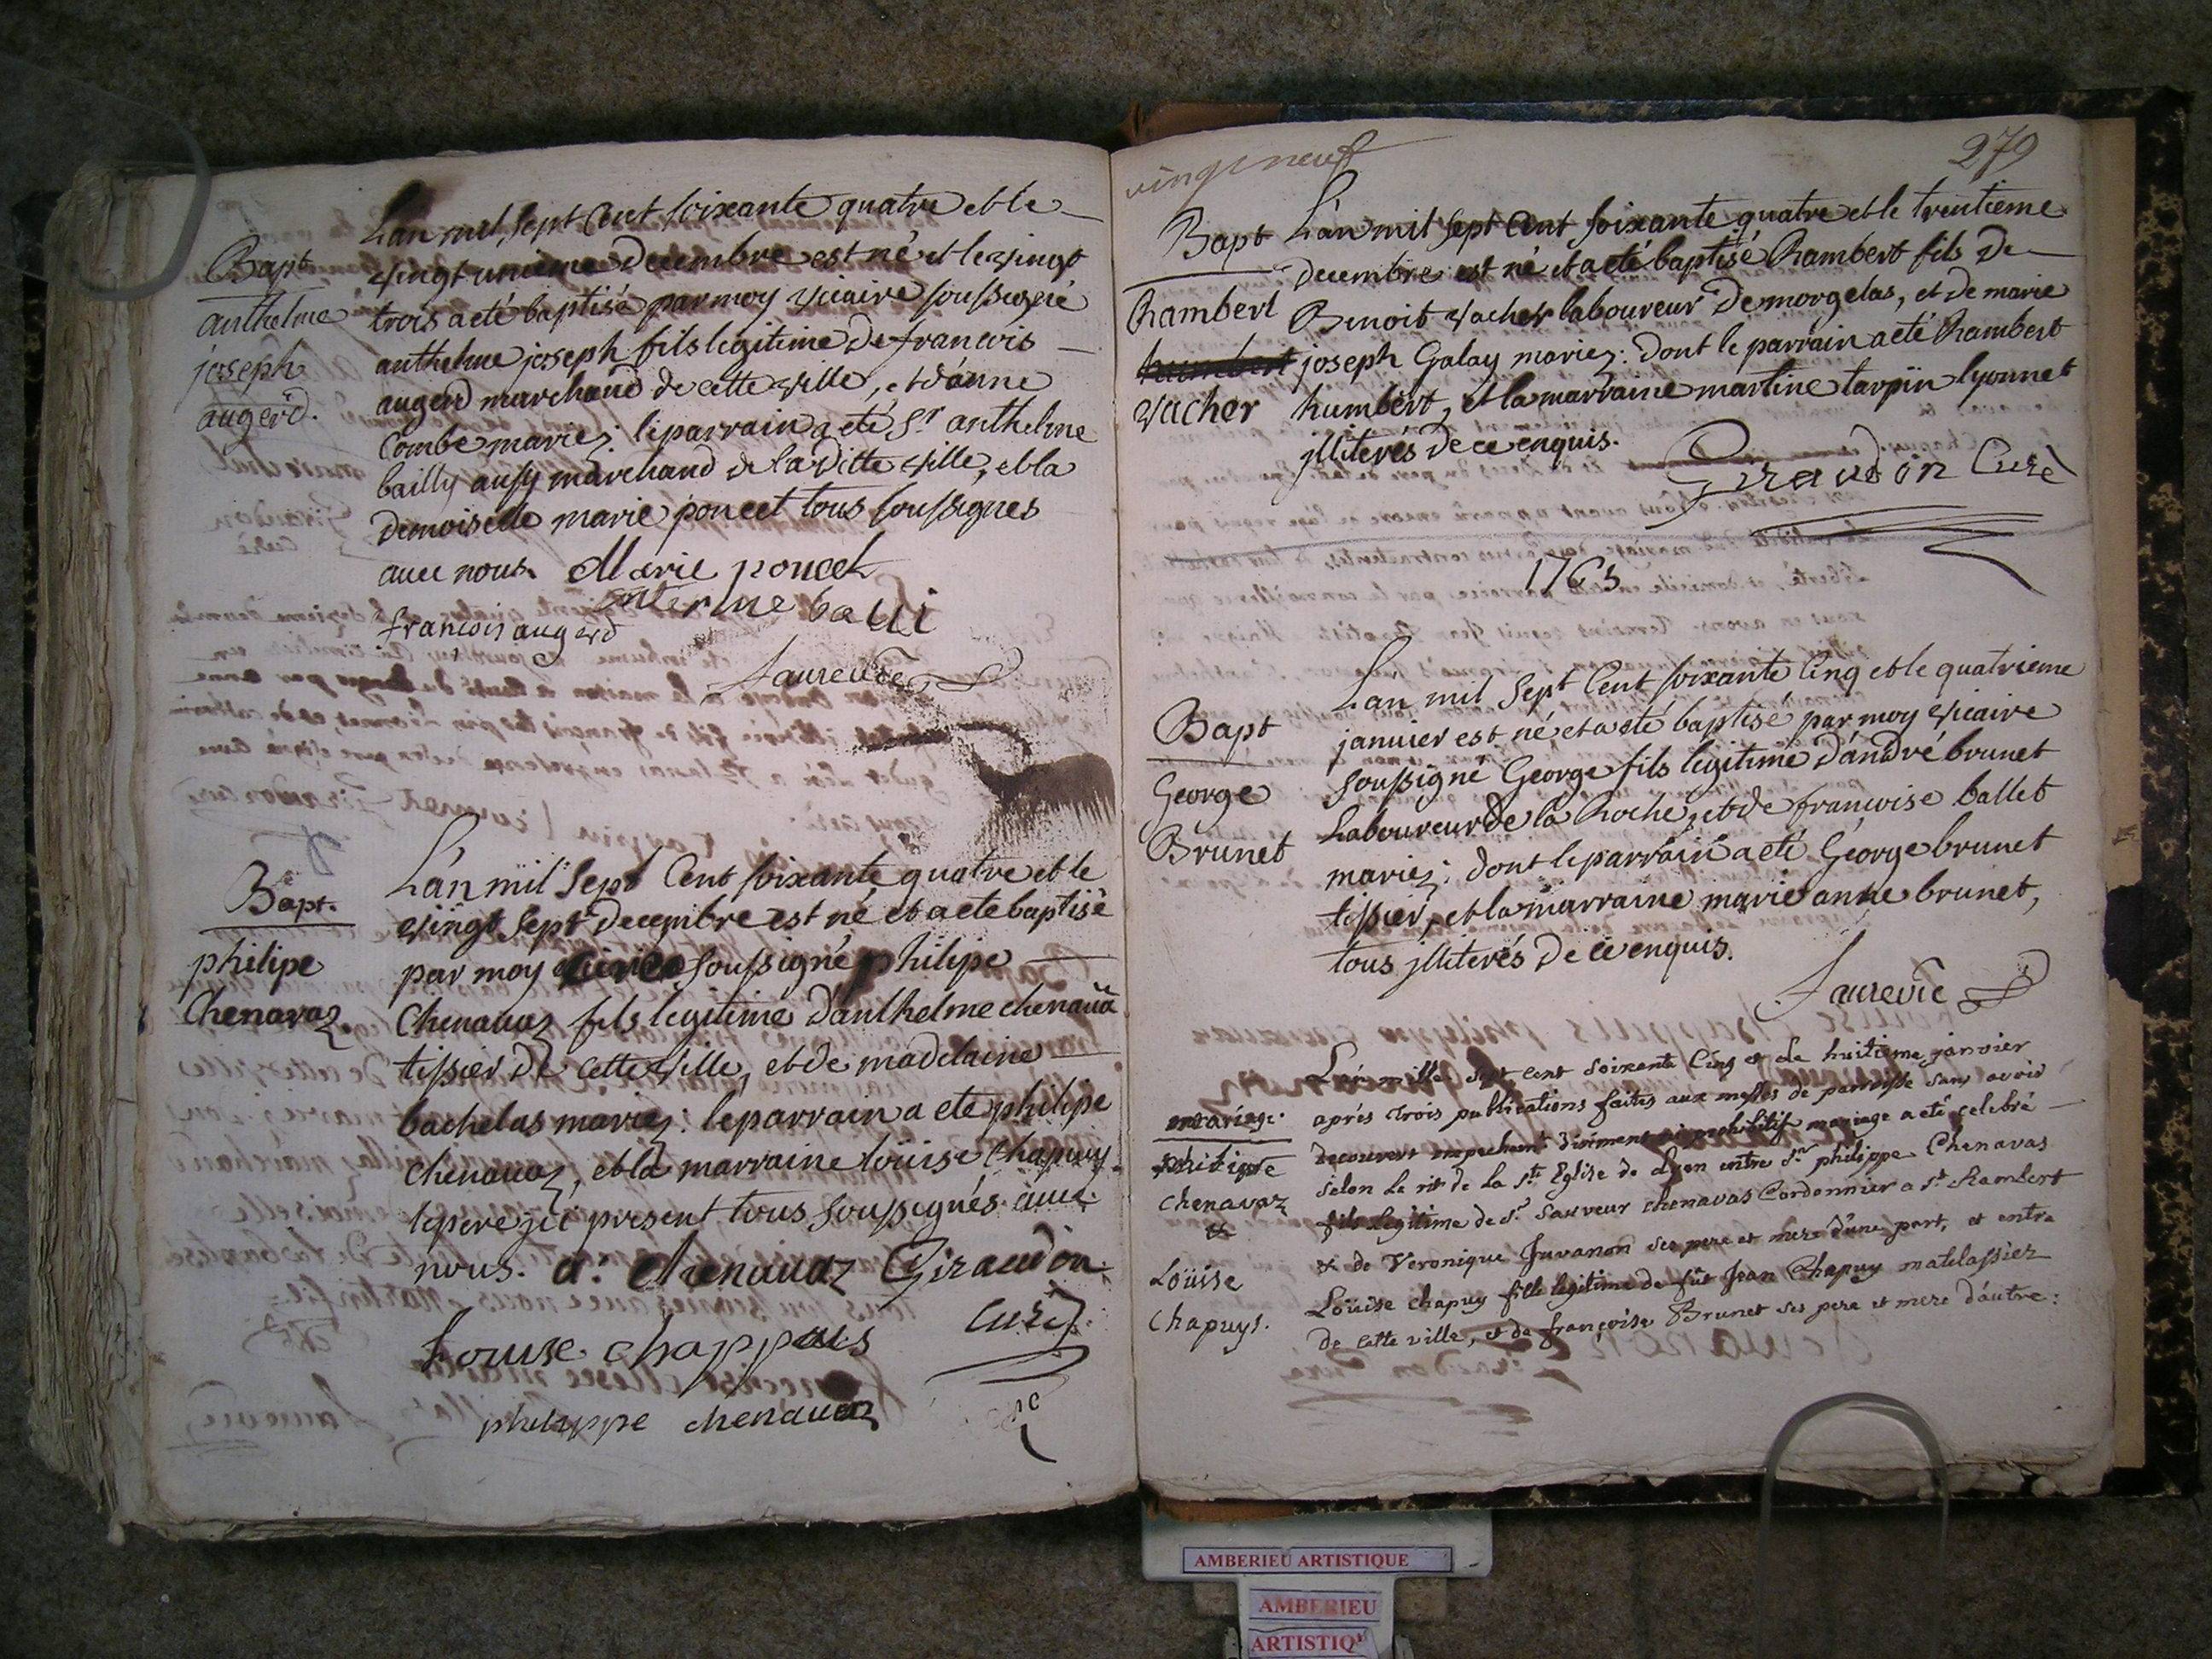 Bapt
anthelme
joseph
augerd.
L'an mil sept Cent soixante quatre et le
vingt unieme decembre est né et le vingt
trois a eté baptisé par moy vicaire soussigné
anthelme joseph fils legitime de francois
augerd marchand de cette ville, et d'anne
Combe mariez: le parrain a eté Sr anthelme
bailly aussy marchand de la ditte ville, et la
demoiselle marie poncet tous soussignes
avec nous. Marie poncet
francois augerd
Bapt.
philipe
Chenavaz.
L'an mil Sept Cent soixante quatre et le
vingt Sept decembre est né et a eté baptisé
par moy soussigné philipe
Chenavaz fils legitime d'anthelme chenava
tissier de cette ville, et de madelaine
bachelas mariez: le parrain a eté philipe
chenavaz, et la marraine loüise Chapuy.
le pere ici present tous soussignés avec
nous. a: Chenavaz Giraudon
Curé
Louise chappuis
philippe chenavaz
vingt neuf
279
Bapt
Rambert
humbert
vacher
L'an mil sept Cent soixante quatre et le trentieme
decembre est né et a eté baptisé Rambert fils de
Benoit vacher laboureur de morgelas, et de marie
joseph Galay mariez: dont le parrain a eté Rambert
humbert, et la marraine martine tarpin lyonnet
jlliterés de ce enquis.
Giraudon Curé
1765
Bapt
George
Brunet
L'an mil Sept Cent soixante Cinq et le quatrieme
janvier est né et a eté baptisé par moy vicaire
soussigné George fils legitime d'andré brunet
Laboureur de la Roche, et de francoise ballet
mariez: dont le parrain a eté George brunet
tissier, et la marraine marie anne brunet,
tous jlliterés de ce enquis.
mariage.
philippe
chenavaz
&
Loüise
Chapuys.
L'an mille sept cent soixante Cinq et le huitieme janvier
aprés trois publications faites aux messes de parroisse sans avoir
decouvert empechement diriment ni prohibitif mariage a eté celebré
selon le rit de la ste Eglise de Lyon entre sr philippe Chenavas
fils legitime de sr Sauveur chenavas Cordonnier a st Rambert
& de Veronique Juvanon ses pere et mere d'une part, et entre
Loüise chapuy fille legitime de fût Jean Chapuy matelassier
de cette ville, et de françoise Brunet ses pere et mere d'autre:
AMBERIEU ARTISTIQUE
AMBERIEU
ARTISTIQ